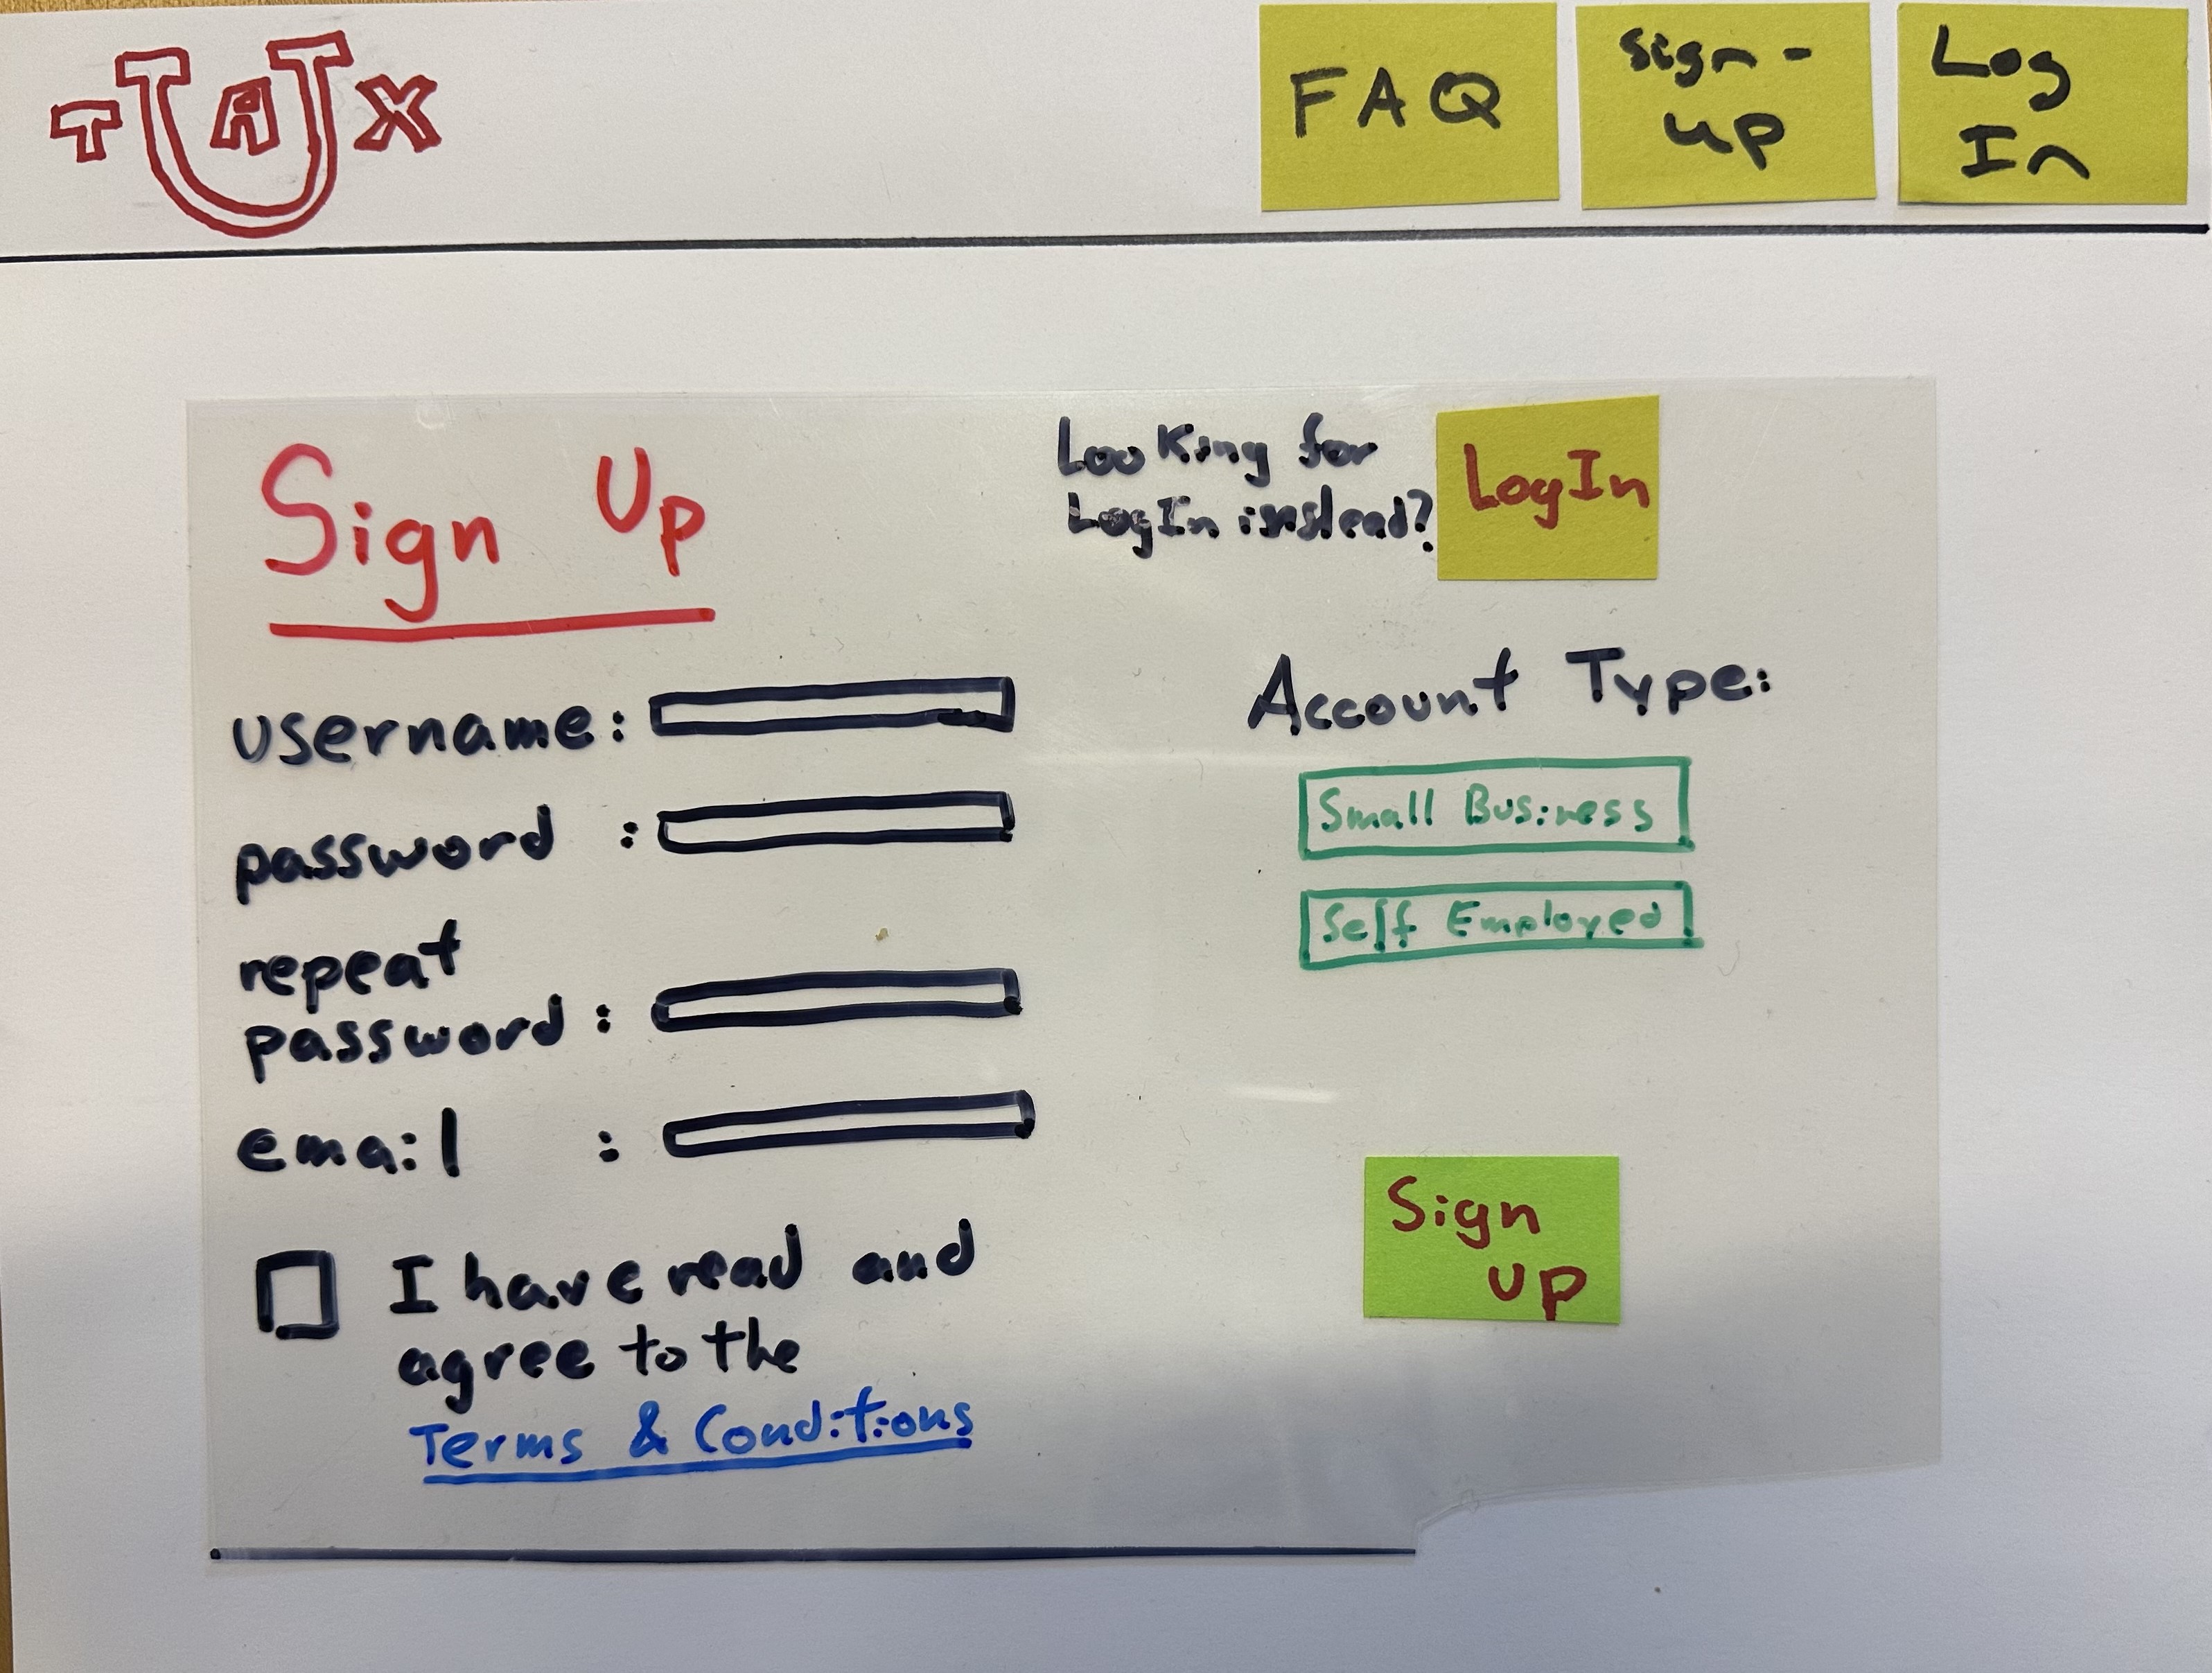 TUAX
FAQ
sign-
up
Log
In
Sign Up
Looking for
LogIn instead?
LogIn
username:
password :
repeat
password:
email :
I have read and
agree to the
Terms & Conditions
Account Type:
Small Business
Self Employed
Sign
up